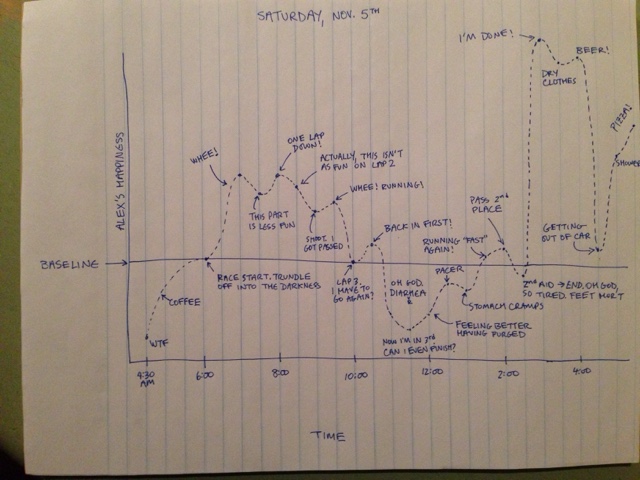 SATURDAY, NOV. 5TH
I'M DONE!
BEER!
DRY
CLOTHES
PIZZA!
SHOWER
ALEX'S HAPPINESS
WHEE!
ONE LAP
DOWN!
ACTUALLY, THIS ISN'T
AS FUN ON LAP 2
THIS PART
IS LESS FUN
WHEE! RUNNING!
SHOOT, I
GOT PASSED
BACK IN FIRST!
PASS 2nd
PLACE
RUNNING "FAST"
AGAIN!
GETTING
OUT OF CAR
BASELINE
RACE START. TRUNDLE
OFF INTO THE DARKNESS
COFFEE
WTF
LAP 3.
I HAVE TO
GO AGAIN?
OH GOD.
DIARRHEA
PACER
STOMACH CRAMPS
2nd AID → END. OH GOD,
SO TIRED. FEET HURT
FEELING BETTER
HAVING PURGED
NOW I'M IN 3rd
CAN I EVEN FINISH?
4:30
AM
6:00
8:00
10:00
12:00
2:00
4:00
TIME